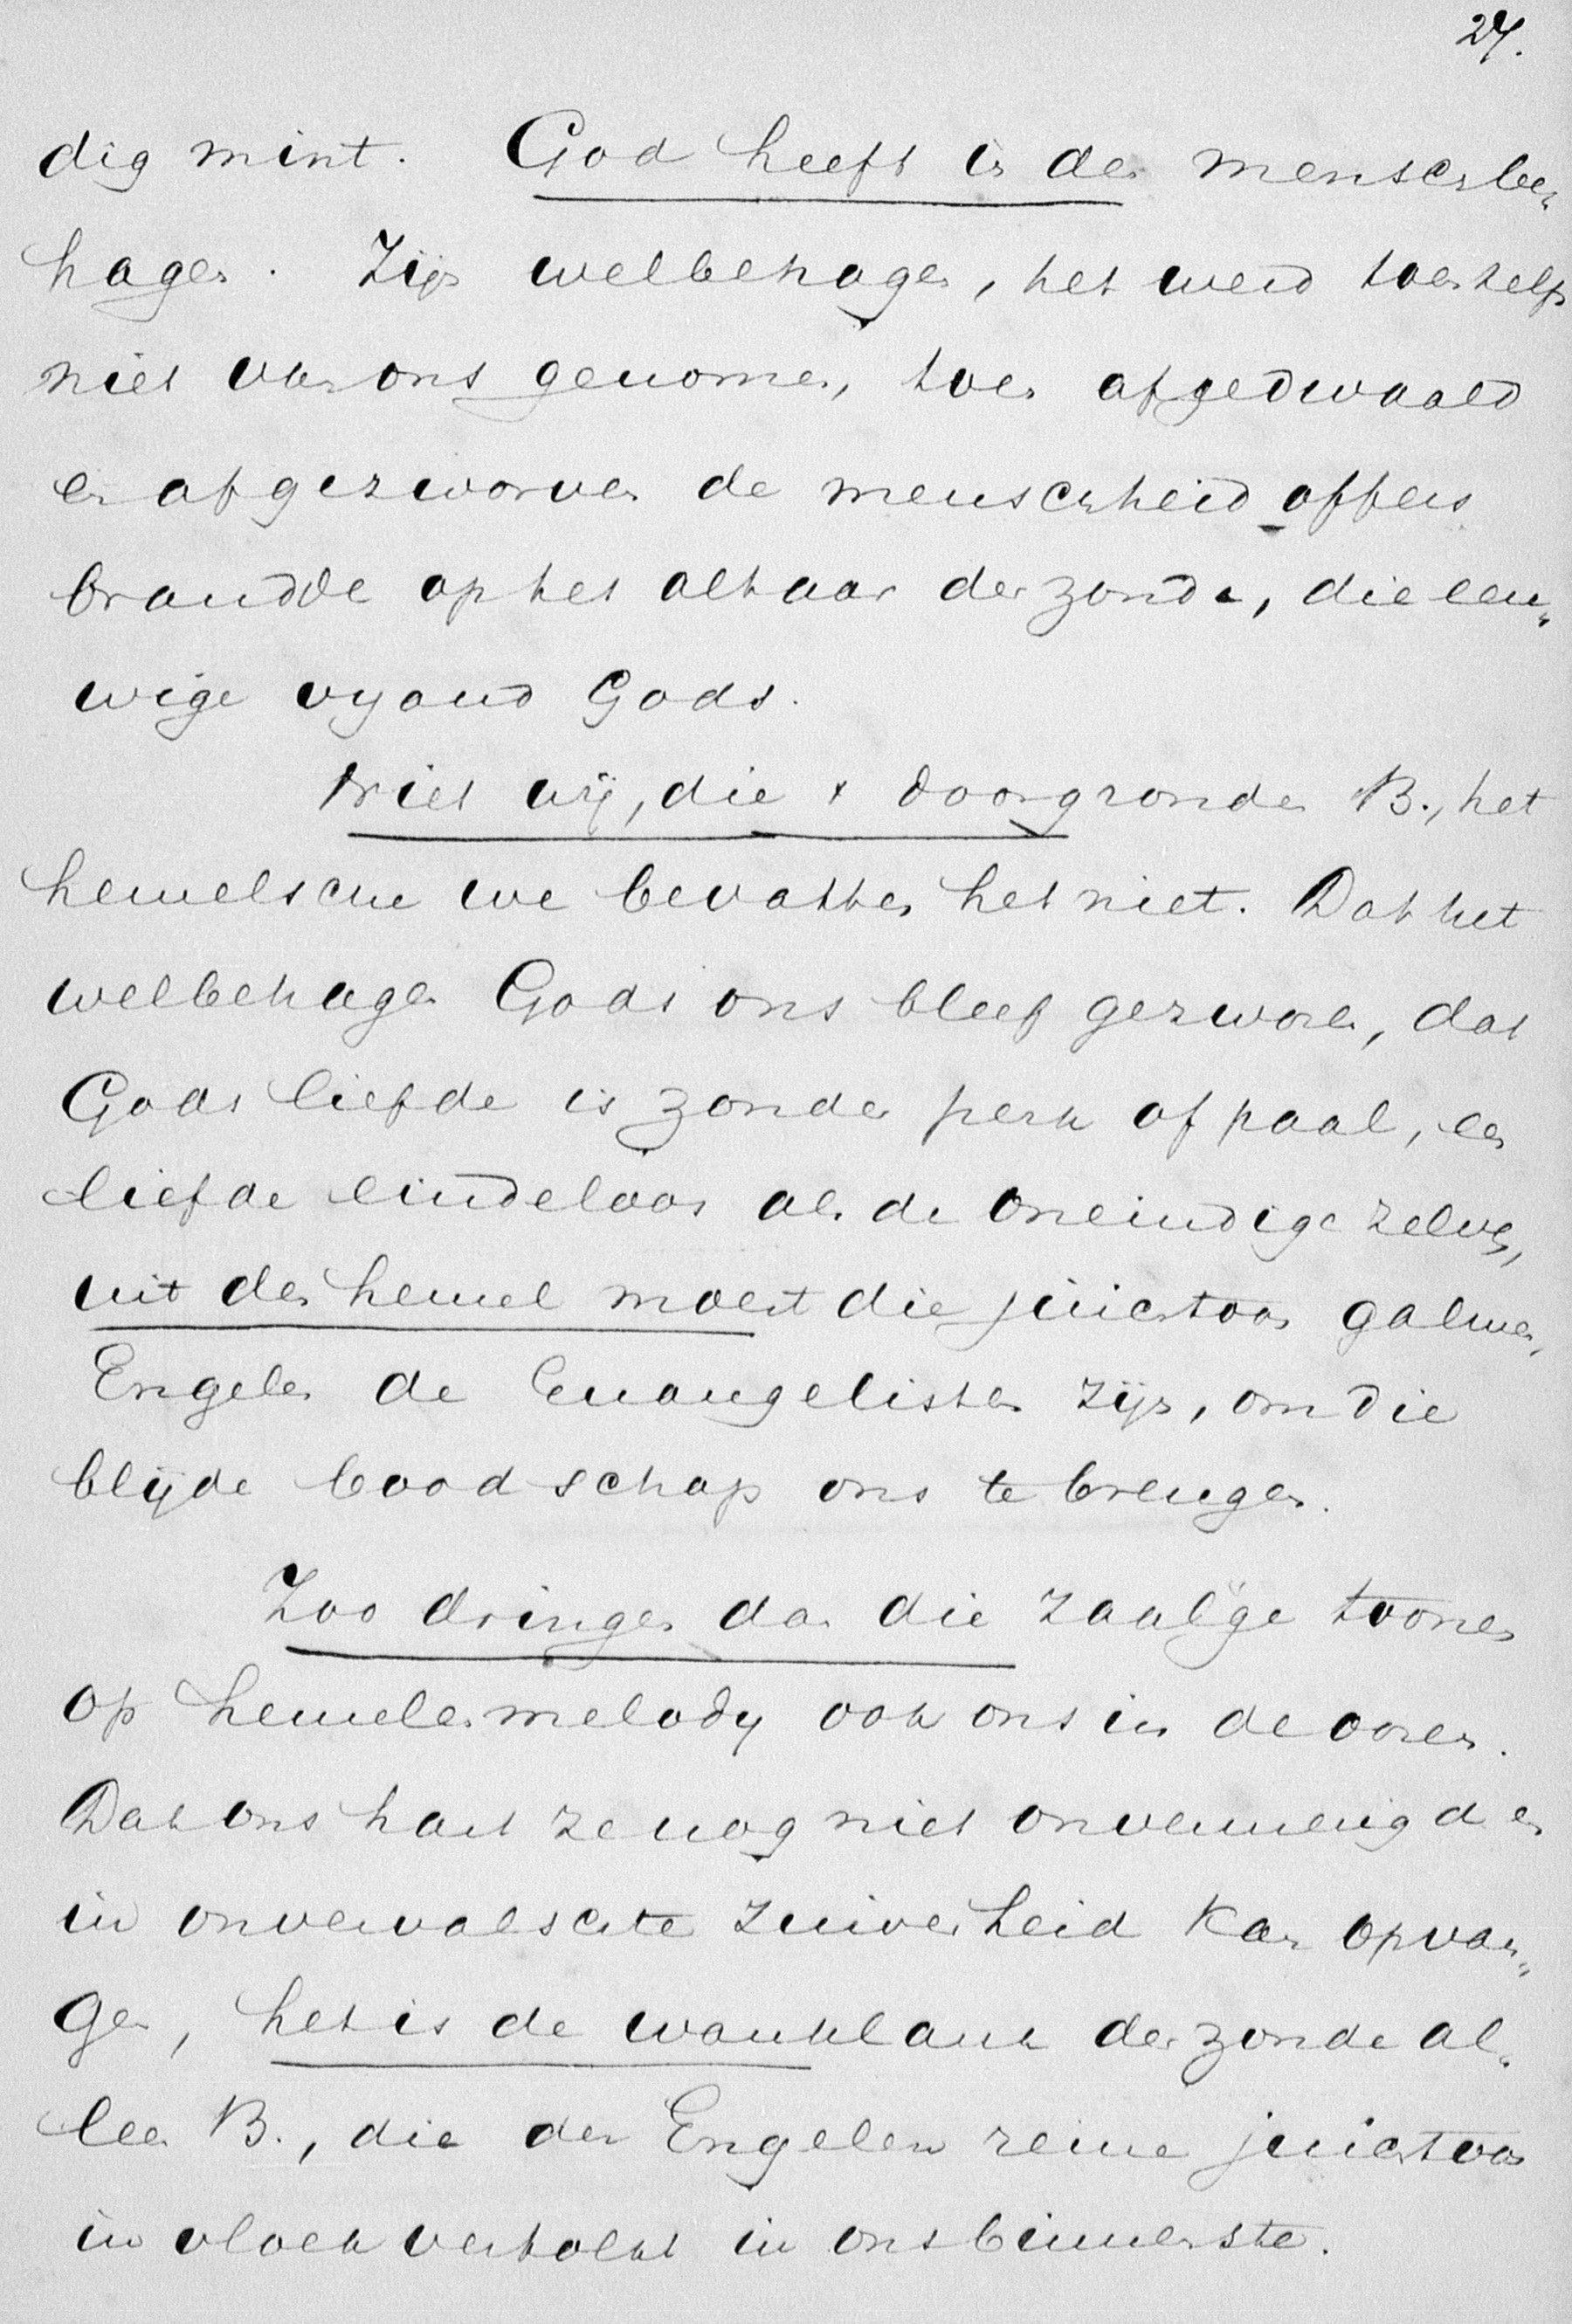 27.
dig mint. God heeft in den mensch be„
hagen. Zijn welbehagen, het werd toen zelfs
niet van ons genomen, toen afgedwaald
en afgezworven de menschheid offers
brandde op het altaar der zonde, die eeu„
wige vyand Gods.
Niet wij, die 't doorgronden B., het
hemelsche we bevatten het niet. Dat het
welbehagen Gods ons bleef gezworen, dat
Gods liefde is zonder perk of paal, een
liefde eindeloos als de Oneindige zelve,
uit den hemel moest die juichtoon galmen,
Engelen de Evangelisten zijn, om die
blijde boodschap ons te brengen.
Zoo dringen dan die zaal'ge toonen
op hemelsmelody ook ons in de ooren.
Dat ons hart ze nog niet onvermengd en
in onvervalschte zuiverheid kan opvan„
gen, het is de wanklank der zonde al„
leen B., die der Engelen reine juichtoon
in vloek vertolkt in ons binnenste.